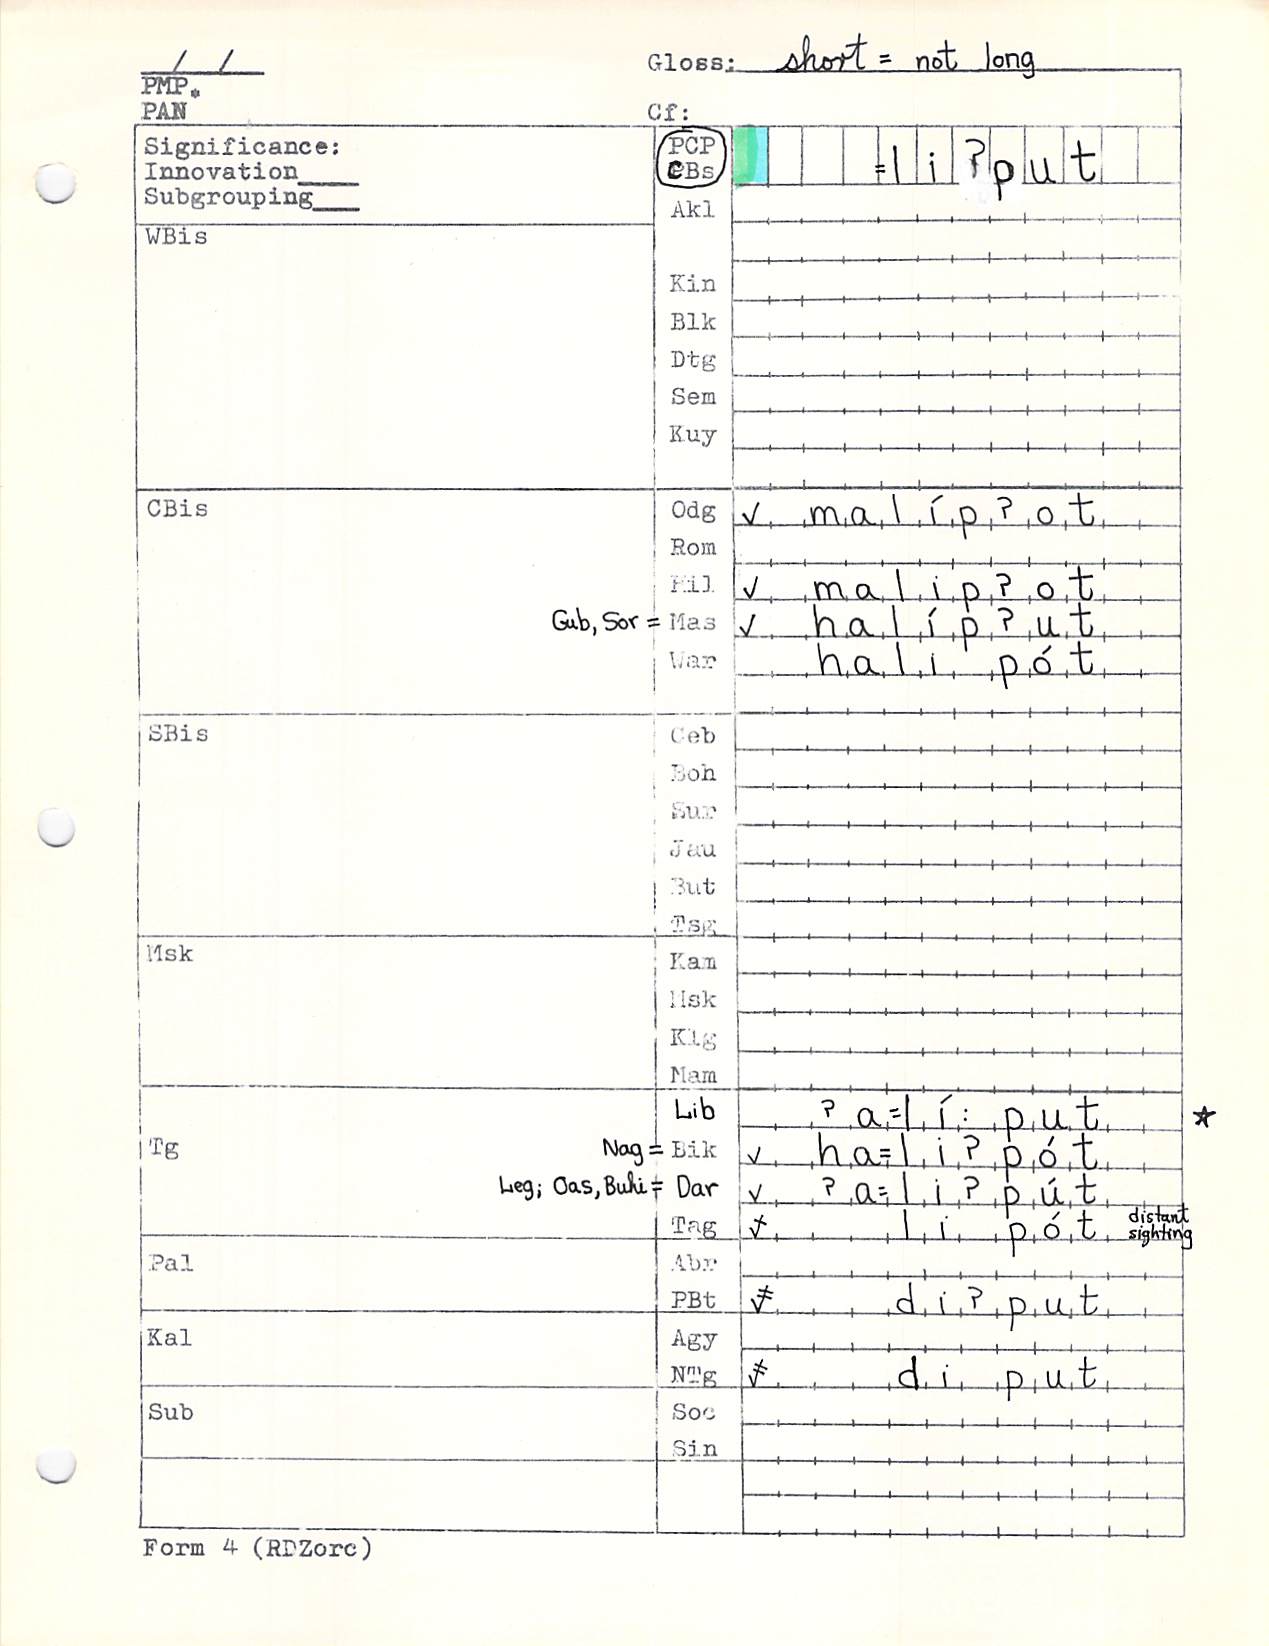 / /
Gloss: short = not long
PMP.
PAN
Cf:
Significance:
Innovation____
Subgrouping___
PCP
CBs =li?put
Akl
WBis
Kin
Blk
Dtg
Sem
Kuy
CBis
Odg ✓ malíp?ot
Rom
Hil ✓ malip?ot
Gub, Sor = Mas ✓ halíp?ut
War hali pót
SBis
Ceb
Boh
Sur
Jau
But
Tsg
Msk
Kam
Msk
Klg
Mam
Lib ?a=lí: put ☆
Tg
Nag = Bik ✓ ha=li?pót
Leg; Oas, Buhi = Dar ✓ ?a=li?pút
Tag li pót distant
sighting
Pal
Abr
PBt di?put
Kal
Agy
NTg di put
Sub
Soc
Sin
Form 4 (RDZorc)